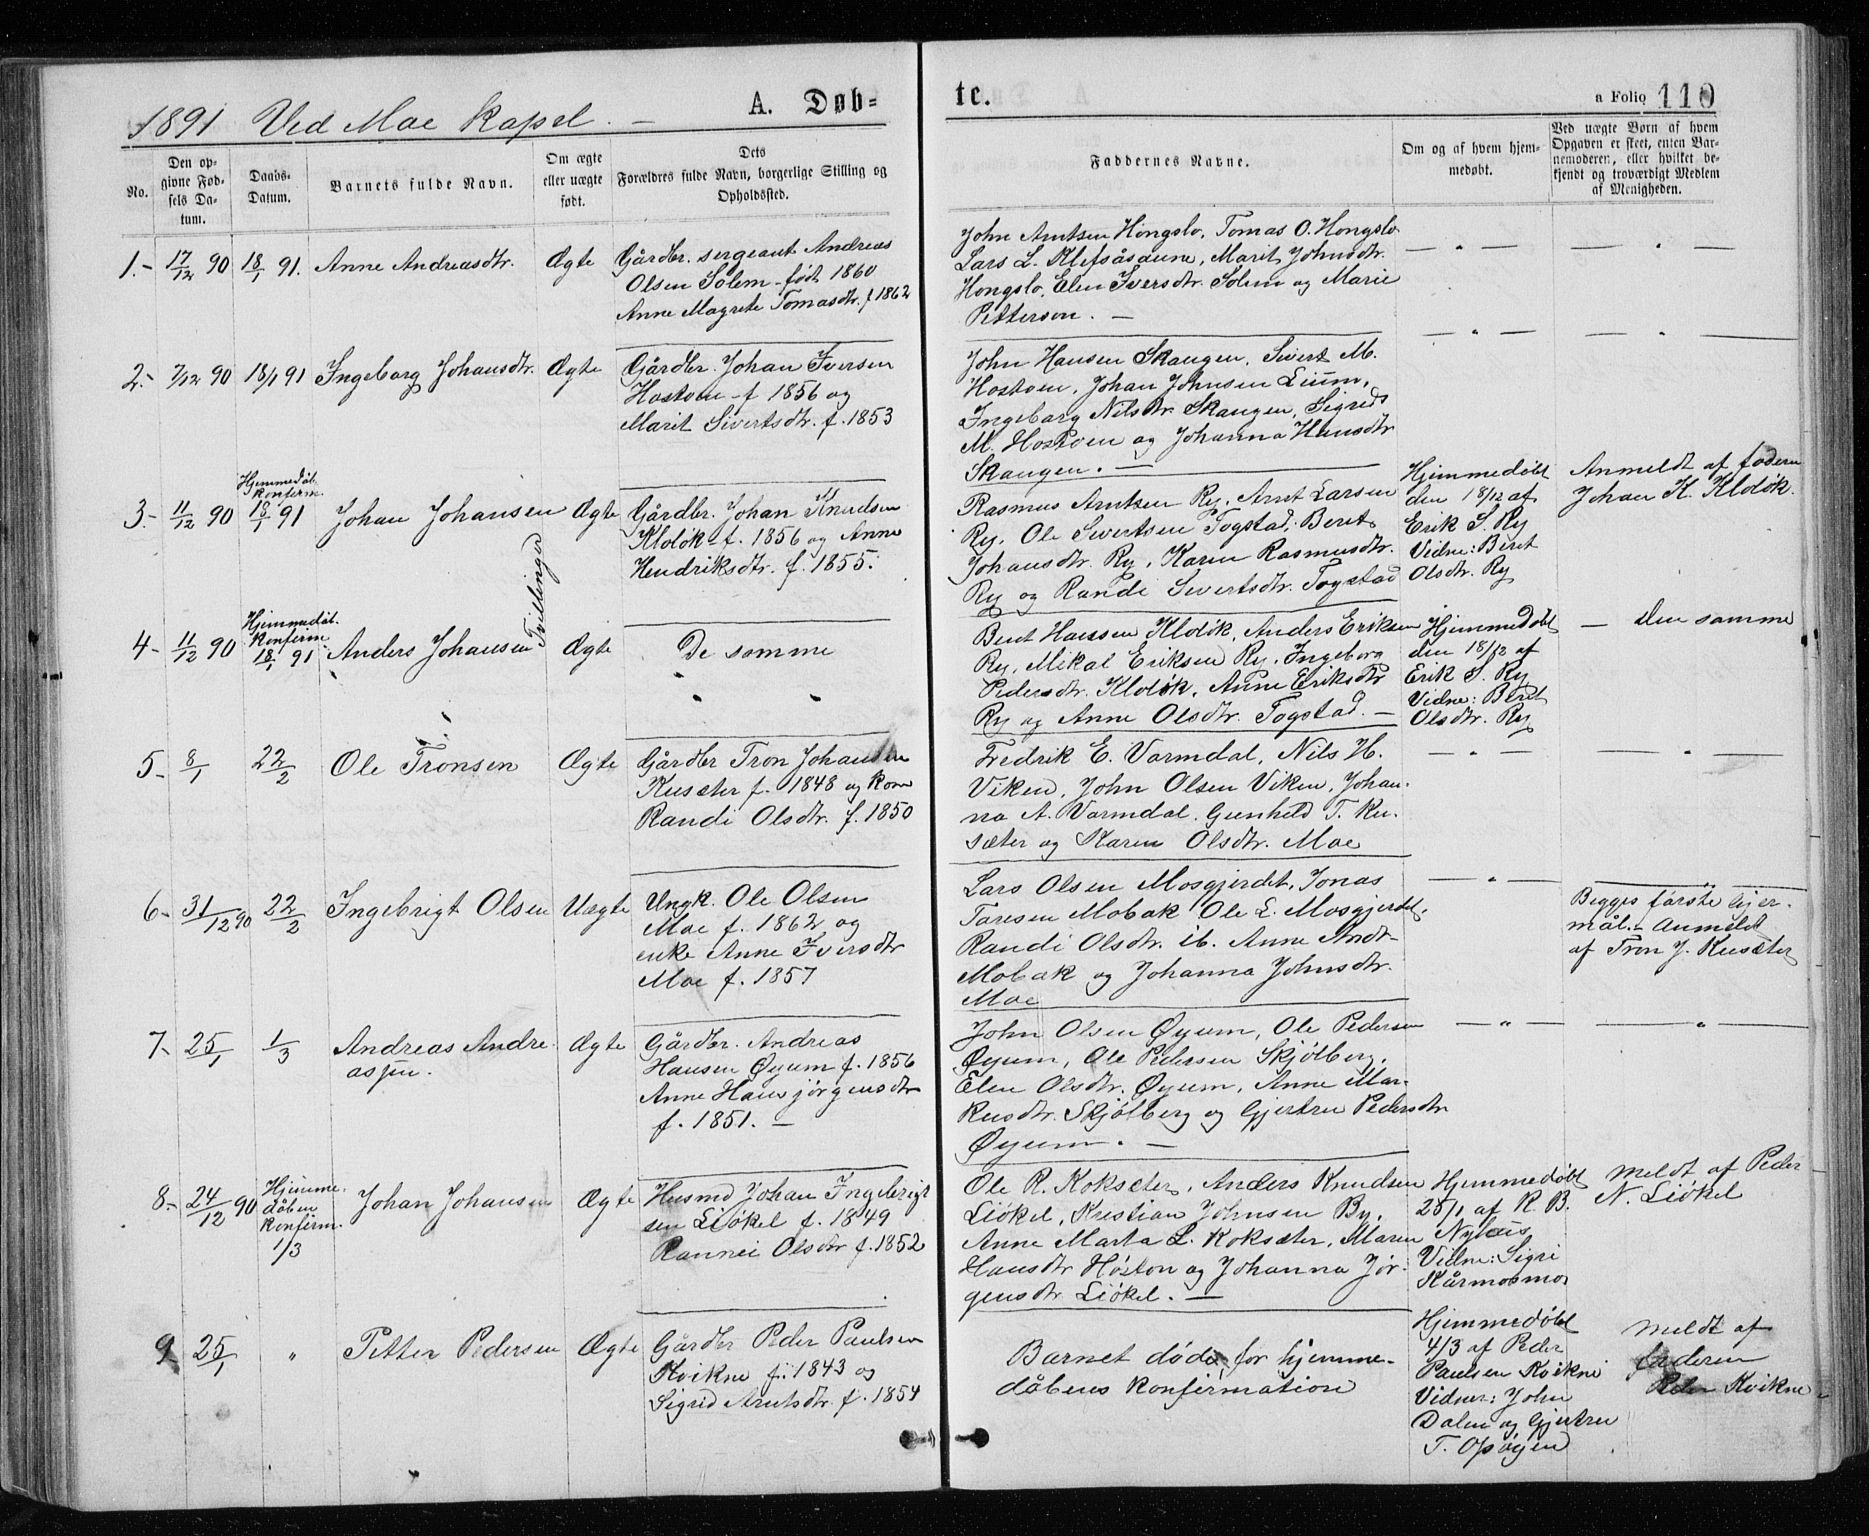 1891 Ved Moe Kapel. —
A. Døb-
te.
a Folio 110
No.
Den op-
givne Fød-
sels Da-
tum.
Daabs-
Datum.
Barnets fulde Navn.
Om ægte
eller uægte
født.
Dets
Forældres fulde Navn, borgerlige Stilling og
Opholdssted.
Faddernes Navne.
Om og af hvem hjem-
medøbt.
Ved uægte Børn af hvem
Opgaven er skeet, enten Bar-
nemoderen, eller hvilket be-
kjendt og troværdigt Medlem
af Menigheden.
1.- 17/12 90 18/1 91. Anne Andreasdtr. Ægte
Gårdbr. sergeant Andreas
Olsen Solem - født 1860
Anne Magrete Tomasdtr. f 1862
John Arntsen Hongslo, Tomas O. Hongslo
Lars L. Klefsåsaune, Marit Johnsdtr.
Hongslo, Elen Iversdtr. Solem og Marie
Petterson. —
— „ —
— „ —
2.- 7/12 90 18/1 91 Ingeborg Johansdtr. Ægte
Gårdbr. Johan Iversen
Hostoen - f 1856 og
Marit Sivertsdtr. f. 1853
John Hansen Skaugen, Sivert M.
Hostoen, Johan Johnsen Lium,
Ingeborg Nilsdtr. Skaugen, Sigrid
M. Hostoen og Johanna Hansdtr
Skaugen. —
— „ —
— „ —
3.- 11/12 90
Hjemmedåb.
Konfirm.
18/1 91
Johan Johansen Ægte
Tvillinger
Gårdbr. Johan Knudsen
Kloløk - f. 1856 og Anne
Hendriksdtr. f. 1855.
Rasmus Arntsen Ry, Arnt Larsen
Ry, Ole Sivertsen Togstad, Beret
Johansdtr. Ry, Karen Rasmusdtr.
Ry og Randi Sivertsdtr. Togstad
Hjemmedøbt
den 18/12 af
Erik S. Ry
Vidne: Beret
Olsdtr. Ry
Anmeldt af faderen
Johan K. Kloløk.
4 - 11/12 90
Hjemmedåb.
Konfirm
18/1 91
Anders Johansen Ægte
De samme
„ „
Berit Hansen Kloløk, Anders Eriksen
Ry, Mikal Eriksen Ry, Ingeborg
Pedersdtr. Kloløk, Anne Eriksdtr
Ry og Anne Olsdtr. Togstad. —
Hjemmedøbt
den 18/12 af
Erik S. Ry
Vidne: Beret
Olsdtr. Ry
— den samme
5 - 8/1 22/2 Ole Tronsen Ægte
Gårdbr Tron Johansen
Kusæter f. 1848 og kone
Randi Olsdtr. f. 1850
Fredrik E. Varmdal, Nils H.
Viken, John Olsen Viken, Johan-
na A. Varmdal, Gunhild T. Ku-
sæter og Karen Olsdtr. Moe
— „ —
— „ —
6 - 31/12 90 22/2 Ingebrigt Olsen Uægte
Ungk. Ole Olsen
Moe f. 1862 og
enke Anne Iversdtr
Moe f. 1857
Lars Olsen Mosgjerdet, Jonas
Taresen Mobak Ole L. Mosgjerdet,
Randi Olsdtr. ib. Anne Andr-
Mobak og Johanna Johnsdtr.
Moe
— „ —
Begges første lejer-
mål. - Anmeldt
af Tron J. Kusæter
7- 25/1 1/3 Andreas Andre-
assen. Ægte
Gårdbr. Andreas
Hansen Øyum f. 1856
Anne Hansjørgensdtr
f. 1851. —
John Olsen Øyum, Ole Pedersen
Øyum, Ole Pedersen Skjølberg,
Elen Olsdtr. Øyum, Anne Mar-
kusdtr. Skjølberg og Gjertru Pedersdtr
Øyum. —
— „ —
— „ —
8- 24/12 90
Hjemme-
dåben
Konfirm.
1/3
Johan Johansen Ægte
Husmd Johan Ingebrigt-
sen Liøkel f. 1849
Rannei Olsdtr f. 1852
Ole R. Koksæter, Anders Knudsen
Liøkel, Kristian Johnsen By,
Anne Marta L. Koksæter, Maren
Hansdtr Høston og Johanna Jør-
gensdtr Liøkel. —
Hjemmedøbt
25/1 af R. B.
Nyhus
Vidne: Sigri
Kårmosmo
Meldt af Peder
N. Liøkel
9 25/1 „ Petter Pedersen Ægte
Gårdbr Peder Paulsen
Kvikne f. 1843 og
Sigrid Arntsdtr. f. 1854
Barnet døde for hjemme-
dåbens Konfirmation
Hjemmedøbt
4/3 af Peder
Paulsen Kvikne
Vidner: John
Dalen og Gjertru
T. Opøyen
Meldt af
faderen
Peder Kvikne